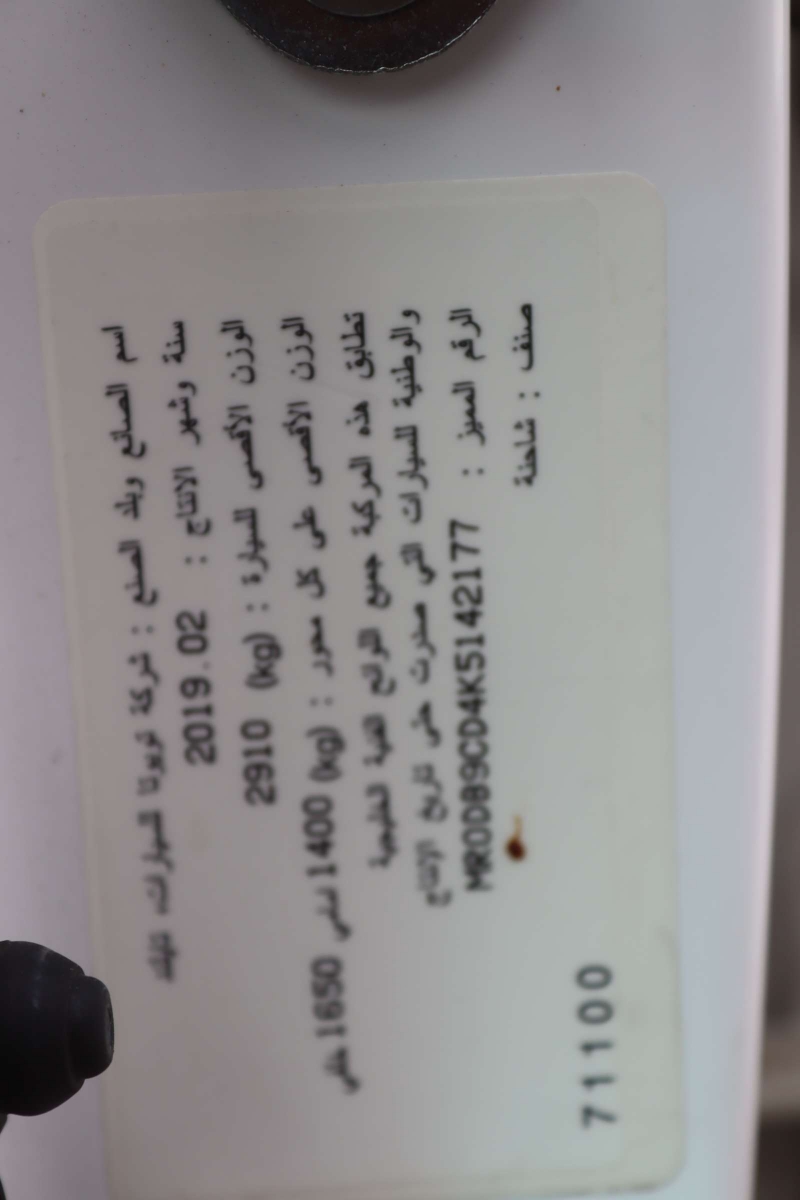 اسم الصانع وبلد الصنع : شركة تويوتا للسيارات، تايلاند
سنة وشهر الانتاج : 2019.02
الوزن الأقصى للسيارة : (kg) 2910
الوزن الأقصى على كل محور : (kg) 1400 امامي 1650 خلفي
تطابق هذه المركبة جميع اللوائح الفنية الخليجية
والوطنية للسيارات التي صدرت حتى تاريخ الإنتاج
الرقم المميز : MR0DB9CD4K5142177
صنف : شاحنة
71100